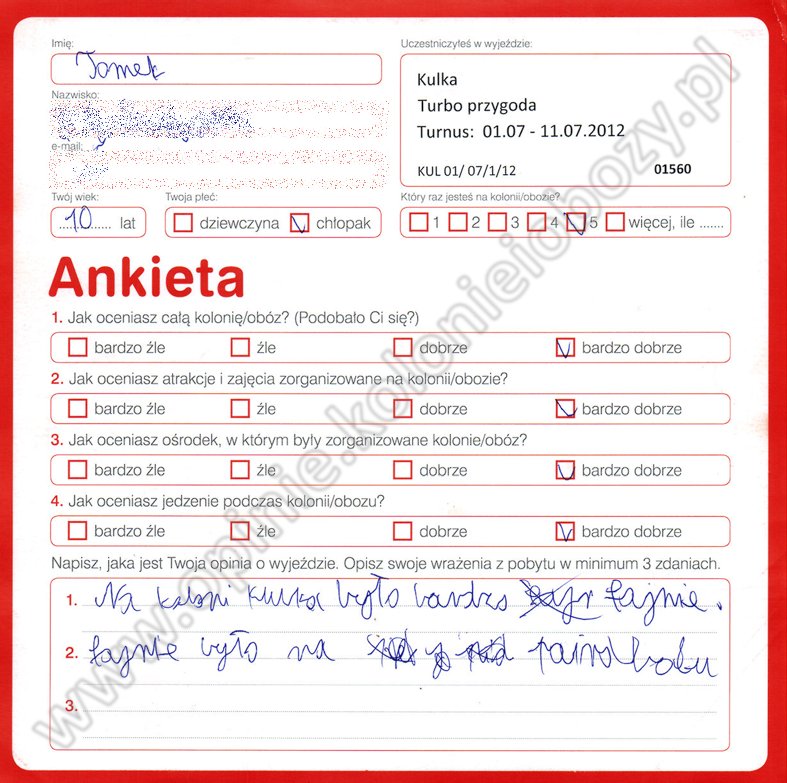 Imię:
Tomek
Uczestniczyłeś w wyjeździe:
Kulka
Turbo przygoda
Turnus: 01.07 - 11.07.2012
KUL 01/ 07/1/12 01560
Nazwisko:
e-mail:
Twój wiek:
10 lat
Twoja płeć:
dziewczyna chłopak
Który raz jesteś na kolonii/obozie?
1 2 3 4 5 więcej, ile .......
Ankieta
1. Jak oceniasz całą kolonię/obóz? (Podobało Ci się?)
bardzo źle źle dobrze bardzo dobrze
2. Jak oceniasz atrakcje i zajęcia zorganizowane na kolonii/obozie?
bardzo źle źle dobrze bardzo dobrze
3. Jak oceniasz ośrodek, w którym były zorganizowane kolonie/obóz?
bardzo źle źle dobrze bardzo dobrze
4. Jak oceniasz jedzenie podczas kolonii/obozu?
bardzo źle źle dobrze bardzo dobrze
Napisz, jaka jest Twoja opinia o wyjeździe. Opisz swoje wrażenia z pobytu w minimum 3 zdaniach.
1. Na było bardzo fajnie.
2. fajnie było na
3.
www.opinie.kolonieiobozy.pl